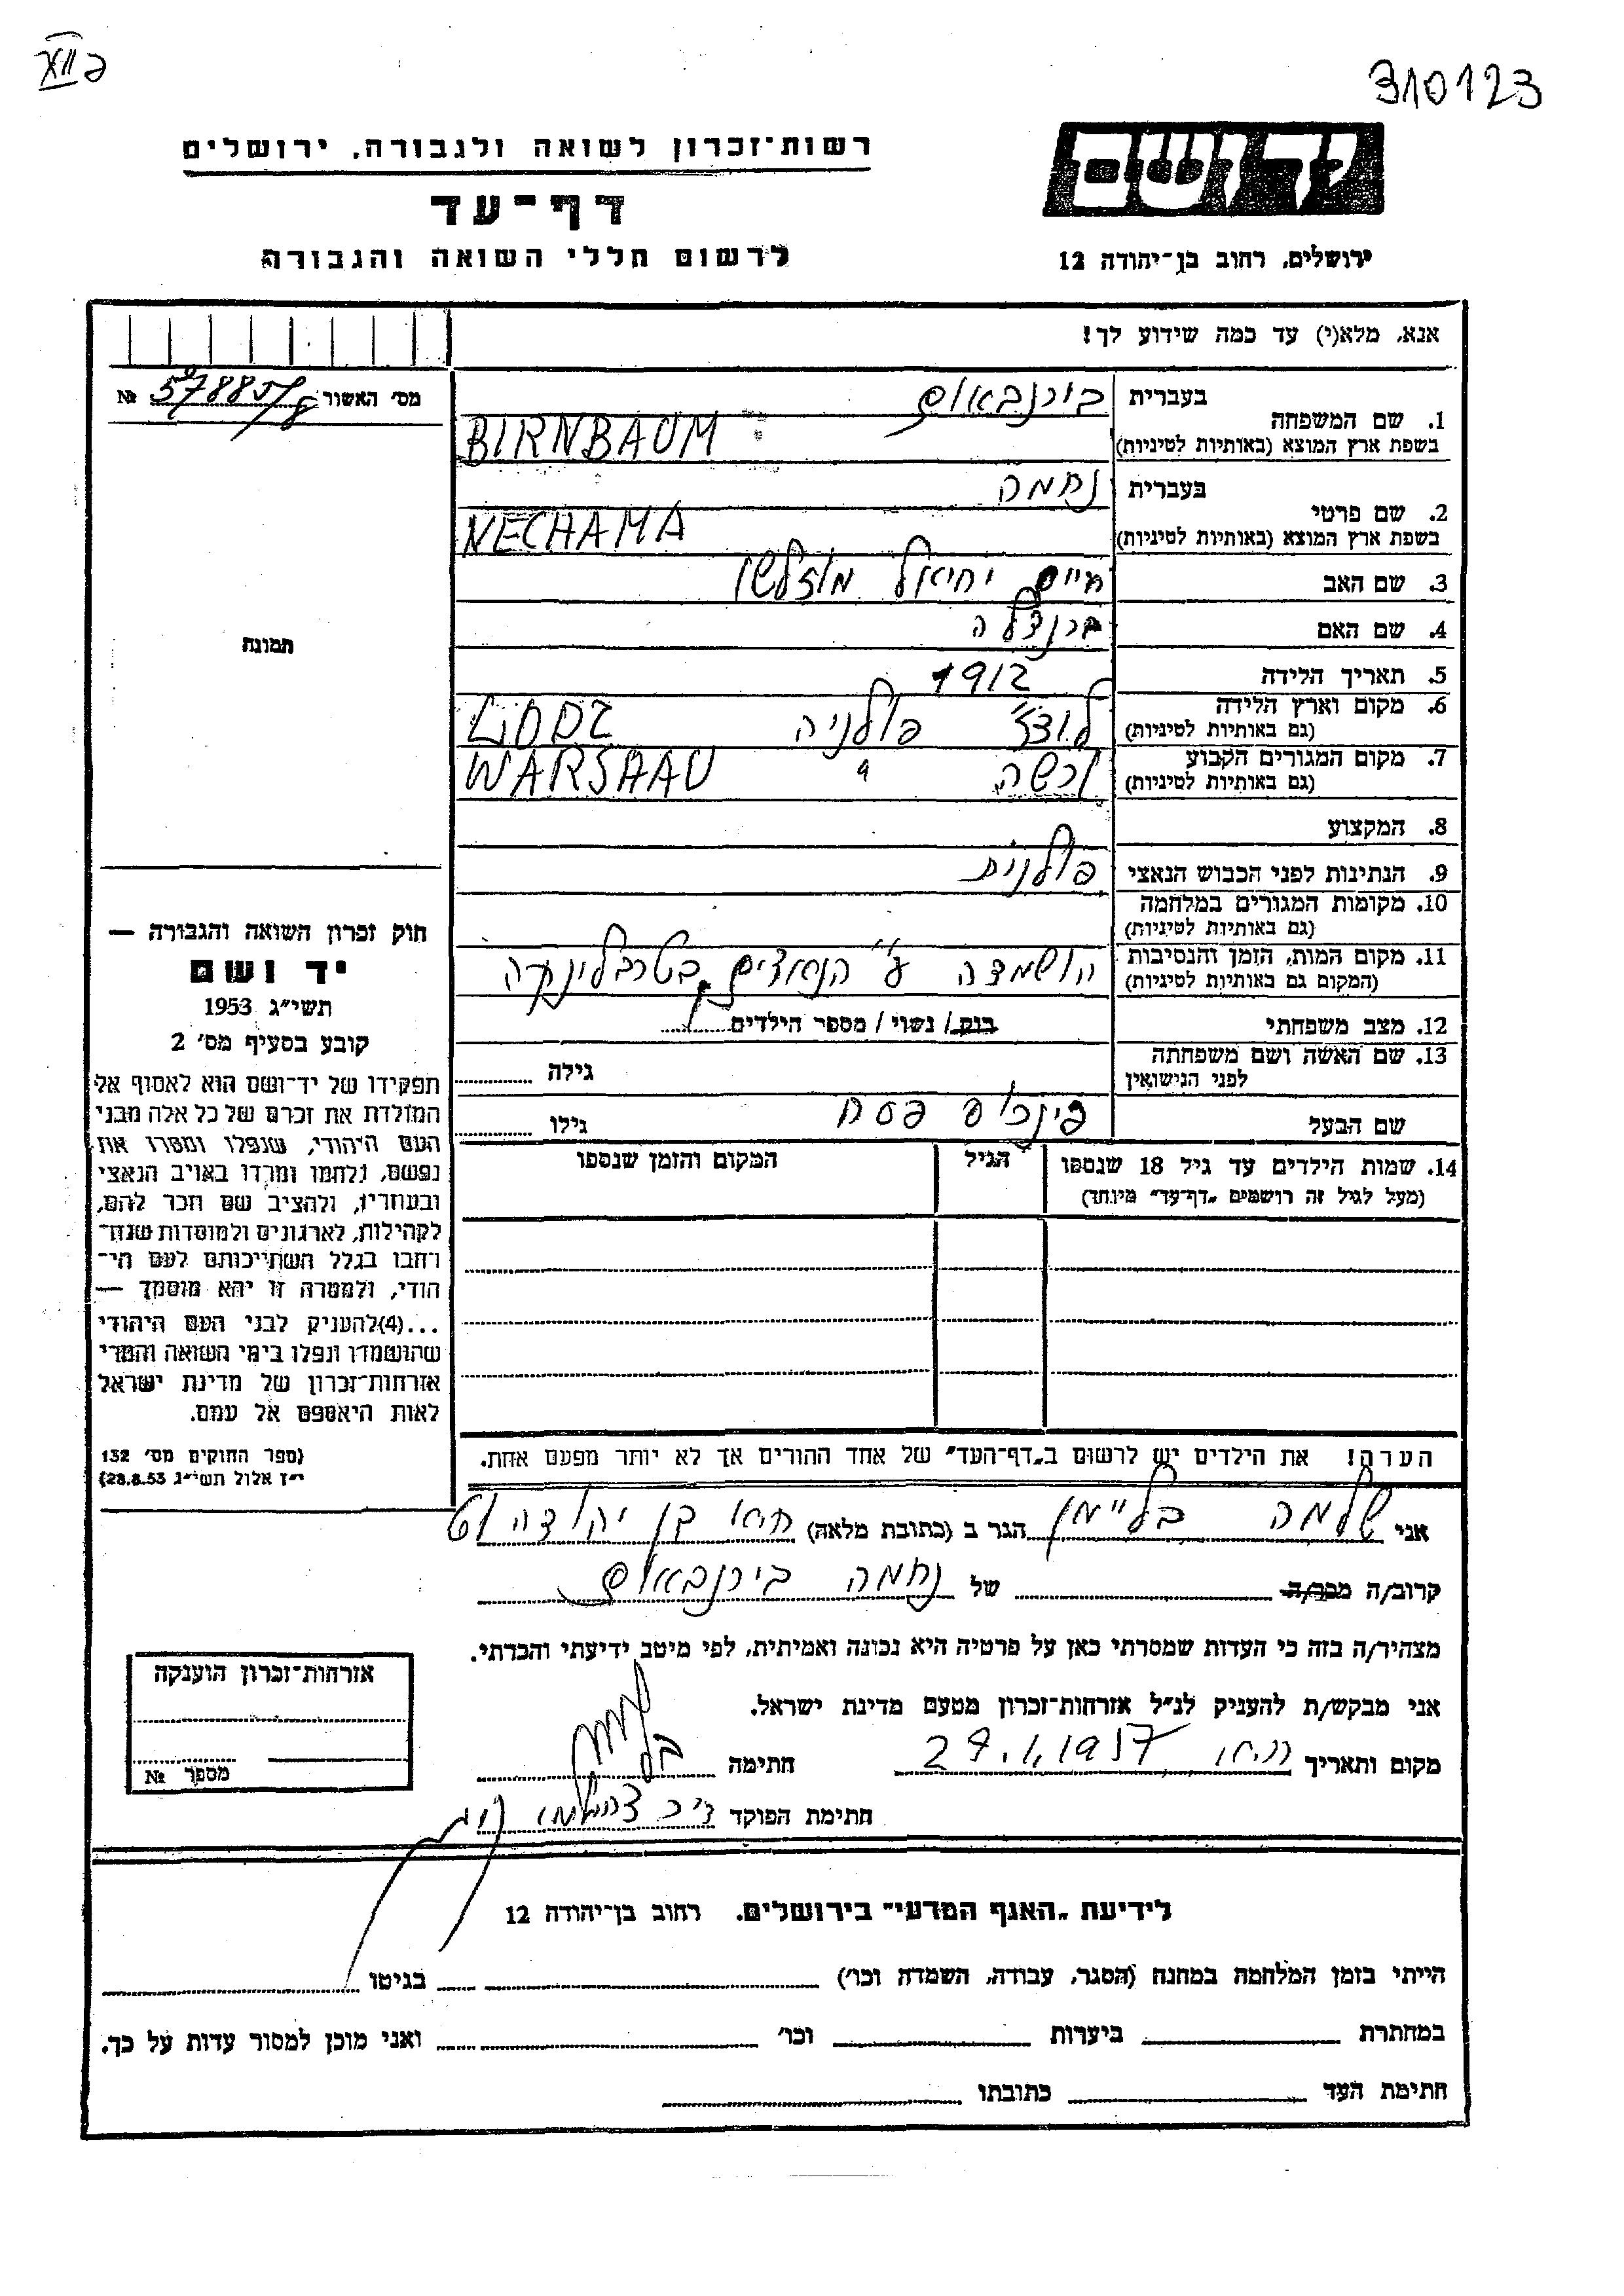 XII 2
310123
רשות־זכרון לשואה ולגבורה, ירושלים
יד ושם
דף־עד
לרשום חללי השואה והגבורה
ירושלים, רחוב בן־יהודה 12
אנא, מלא(י) עד כמה שידוע לך!
מס' האשור № 578857/8
1. שם המשפחה בעברית בירנבאום
בשפת ארץ המוצא (באותיות לטיניות) BIRNBAUM
2. שם פרטי בעברית נחמה
בשפת ארץ המוצא (באותיות לטיניות) NECHAMA
3. שם האב חיים יחיאל
4. שם האם
תמונה
5. תאריך הלידה 1912
6. מקום וארץ הלידה (גם באותיות לטיניות) לודז' פולניה LODZ
7. מקום המגורים הקבוע (גם באותיות לטיניות) ורשה " WARSAAU
8. המקצוע
9. הנתינות לפני הכבוש הנאצי פולנית
10. מקומות המגורים במלחמה (גם באותיות לטיניות)
11. מקום המות, הזמן והנסיבות (המקום גם באותיות לטיניות) הושמדה ע"י הנאצים בטרבלינקה
12. מצב משפחתי רווק / נשוי / מספר הילדים
13. שם האשה ושם משפחתה לפני הנישואין גילה
שם הבעל פינכוס פסח גילו
14. שמות הילדים עד גיל 18 שנספו הגיל המקום והזמן שנספו
(מעל לגיל זה רושמים „דף־עד" מיוחד)
חוק זכרון השואה והגבורה —
יד ושם
תשי״ג 1953
קובע בסעיף מס' 2
תפקידו של יד־ושם הוא לאסוף אל
המולדת את זכרם של כל אלה מבני
העם היהודי, שנפלו ומסרו את
נפשם, נלחמו ומרדו באויב הנאצי
ובעוזריו, ולהציב שם וזכר להם,
לקהילות, לארגונים ולמוסדות שנח־
רבו בגלל השתייכותם לעם הי־
הודי, ולמטרה זו יהא מוסמך —
...(4) להעניק לבני העם היהודי
שהושמדו ונפלו בימי השואה והמרי
אזרחות־זכרון של מדינת ישראל
לאות היאספם אל עמם.
(ספר החוקים מס' 132
י״ז אלול תשי״ג 28.8.53)
הערה! את הילדים יש לרשום ב„דף־העד" של אחד ההורים אך לא יותר מפעם אחת.
אני שלמה הגר ב (כתובת מלאה) בן יהודה
קרוב/ה מכר/ה של נחמה בירנבאום
מצהיר/ה בזה כי העדות שמסרתי כאן על פרטיה היא נכונה ואמיתית, לפי מיטב ידיעתי והכרתי.
אני מבקש/ת להעניק לנ״ל אזרחות־זכרון מטעם מדינת ישראל.
מקום ותאריך 29.1.1957 חתימה
חתימת הפוקד
אזרחות־זכרון הוענקה
מספר №
לידיעת „האגף המדעי" בירושלים, רחוב בן־יהודה 12
הייתי בזמן המלחמה במחנה (הסגר, עבודה, השמדה וכו') בגיטו
במחתרת ביערות וכו' ואני מוכן למסור עדות על כך.
חתימת העד כתובתו